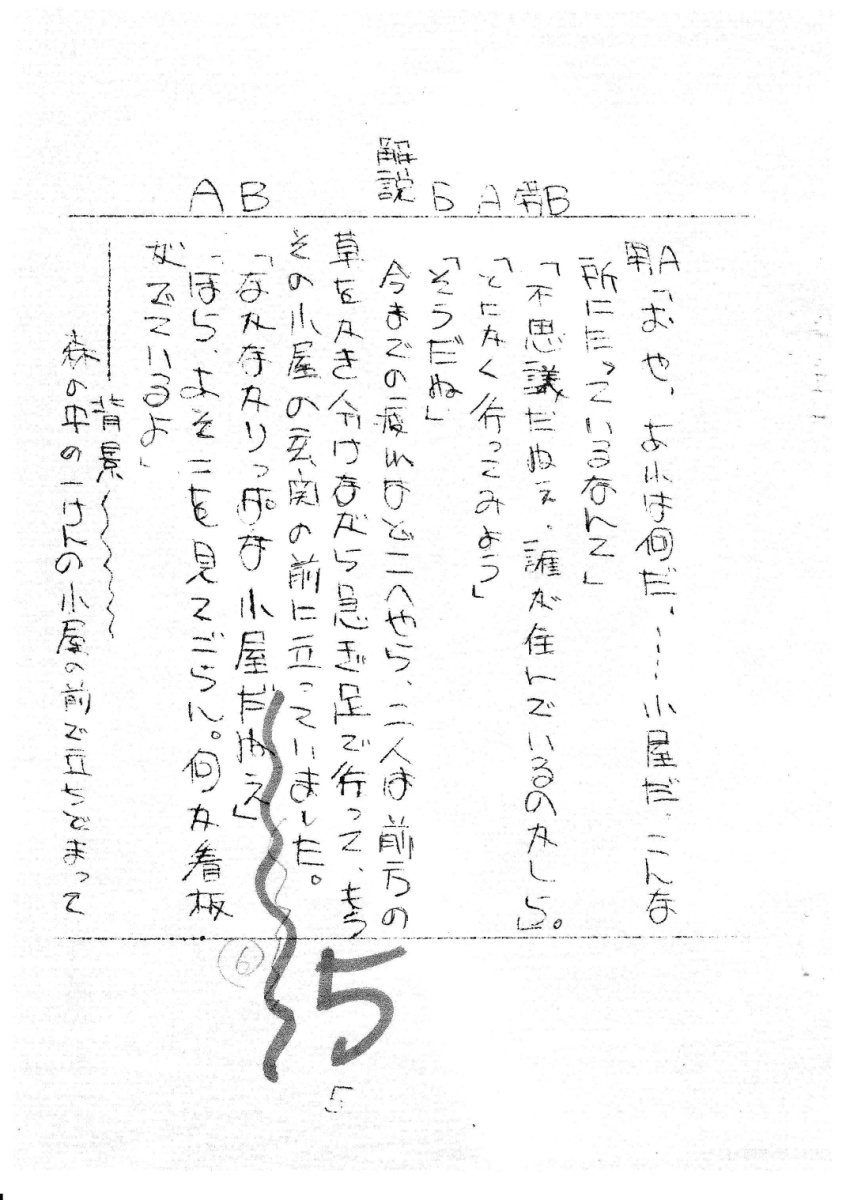 男A「おや、あれは何だ、……小屋だ、こんな
所にたっているなんて」
男B「不思議だねえ、誰が住んでいるのかしら」。
A「とにかく行ってみよう」
B「そうだね」
解説 今までの疲れなどこへやら、二人は前方の
草をかき分けながら急ぎ足で行って、もう
その小屋の玄関の前に立っていました。
B「なかなかりっぱな小屋だねえ」
A「ほら、よそこを見てごらん。何か看板
がでているよ」
背景
森の中の一けんの小屋の前で立ちどまって
⑥
5
5